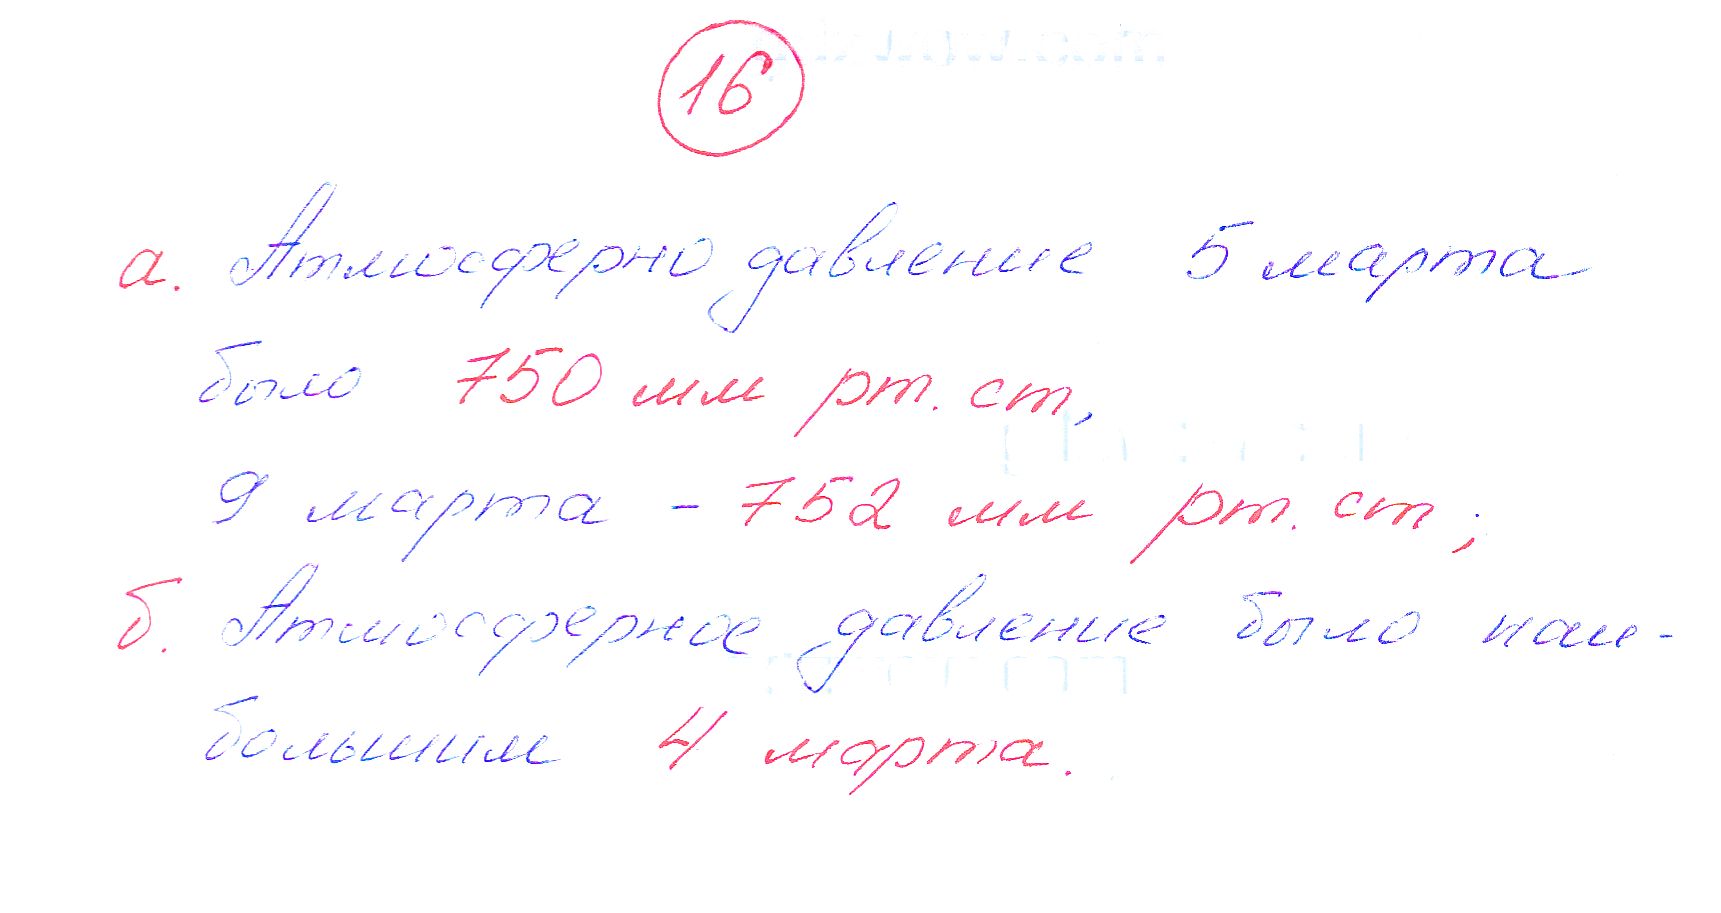 16
а. Атмосферно давление 5 марта
было 750 мм рт. ст,
9 марта - 752 мм рт. ст;
б. Атмосферное давление было наи-
большим 4 марта.